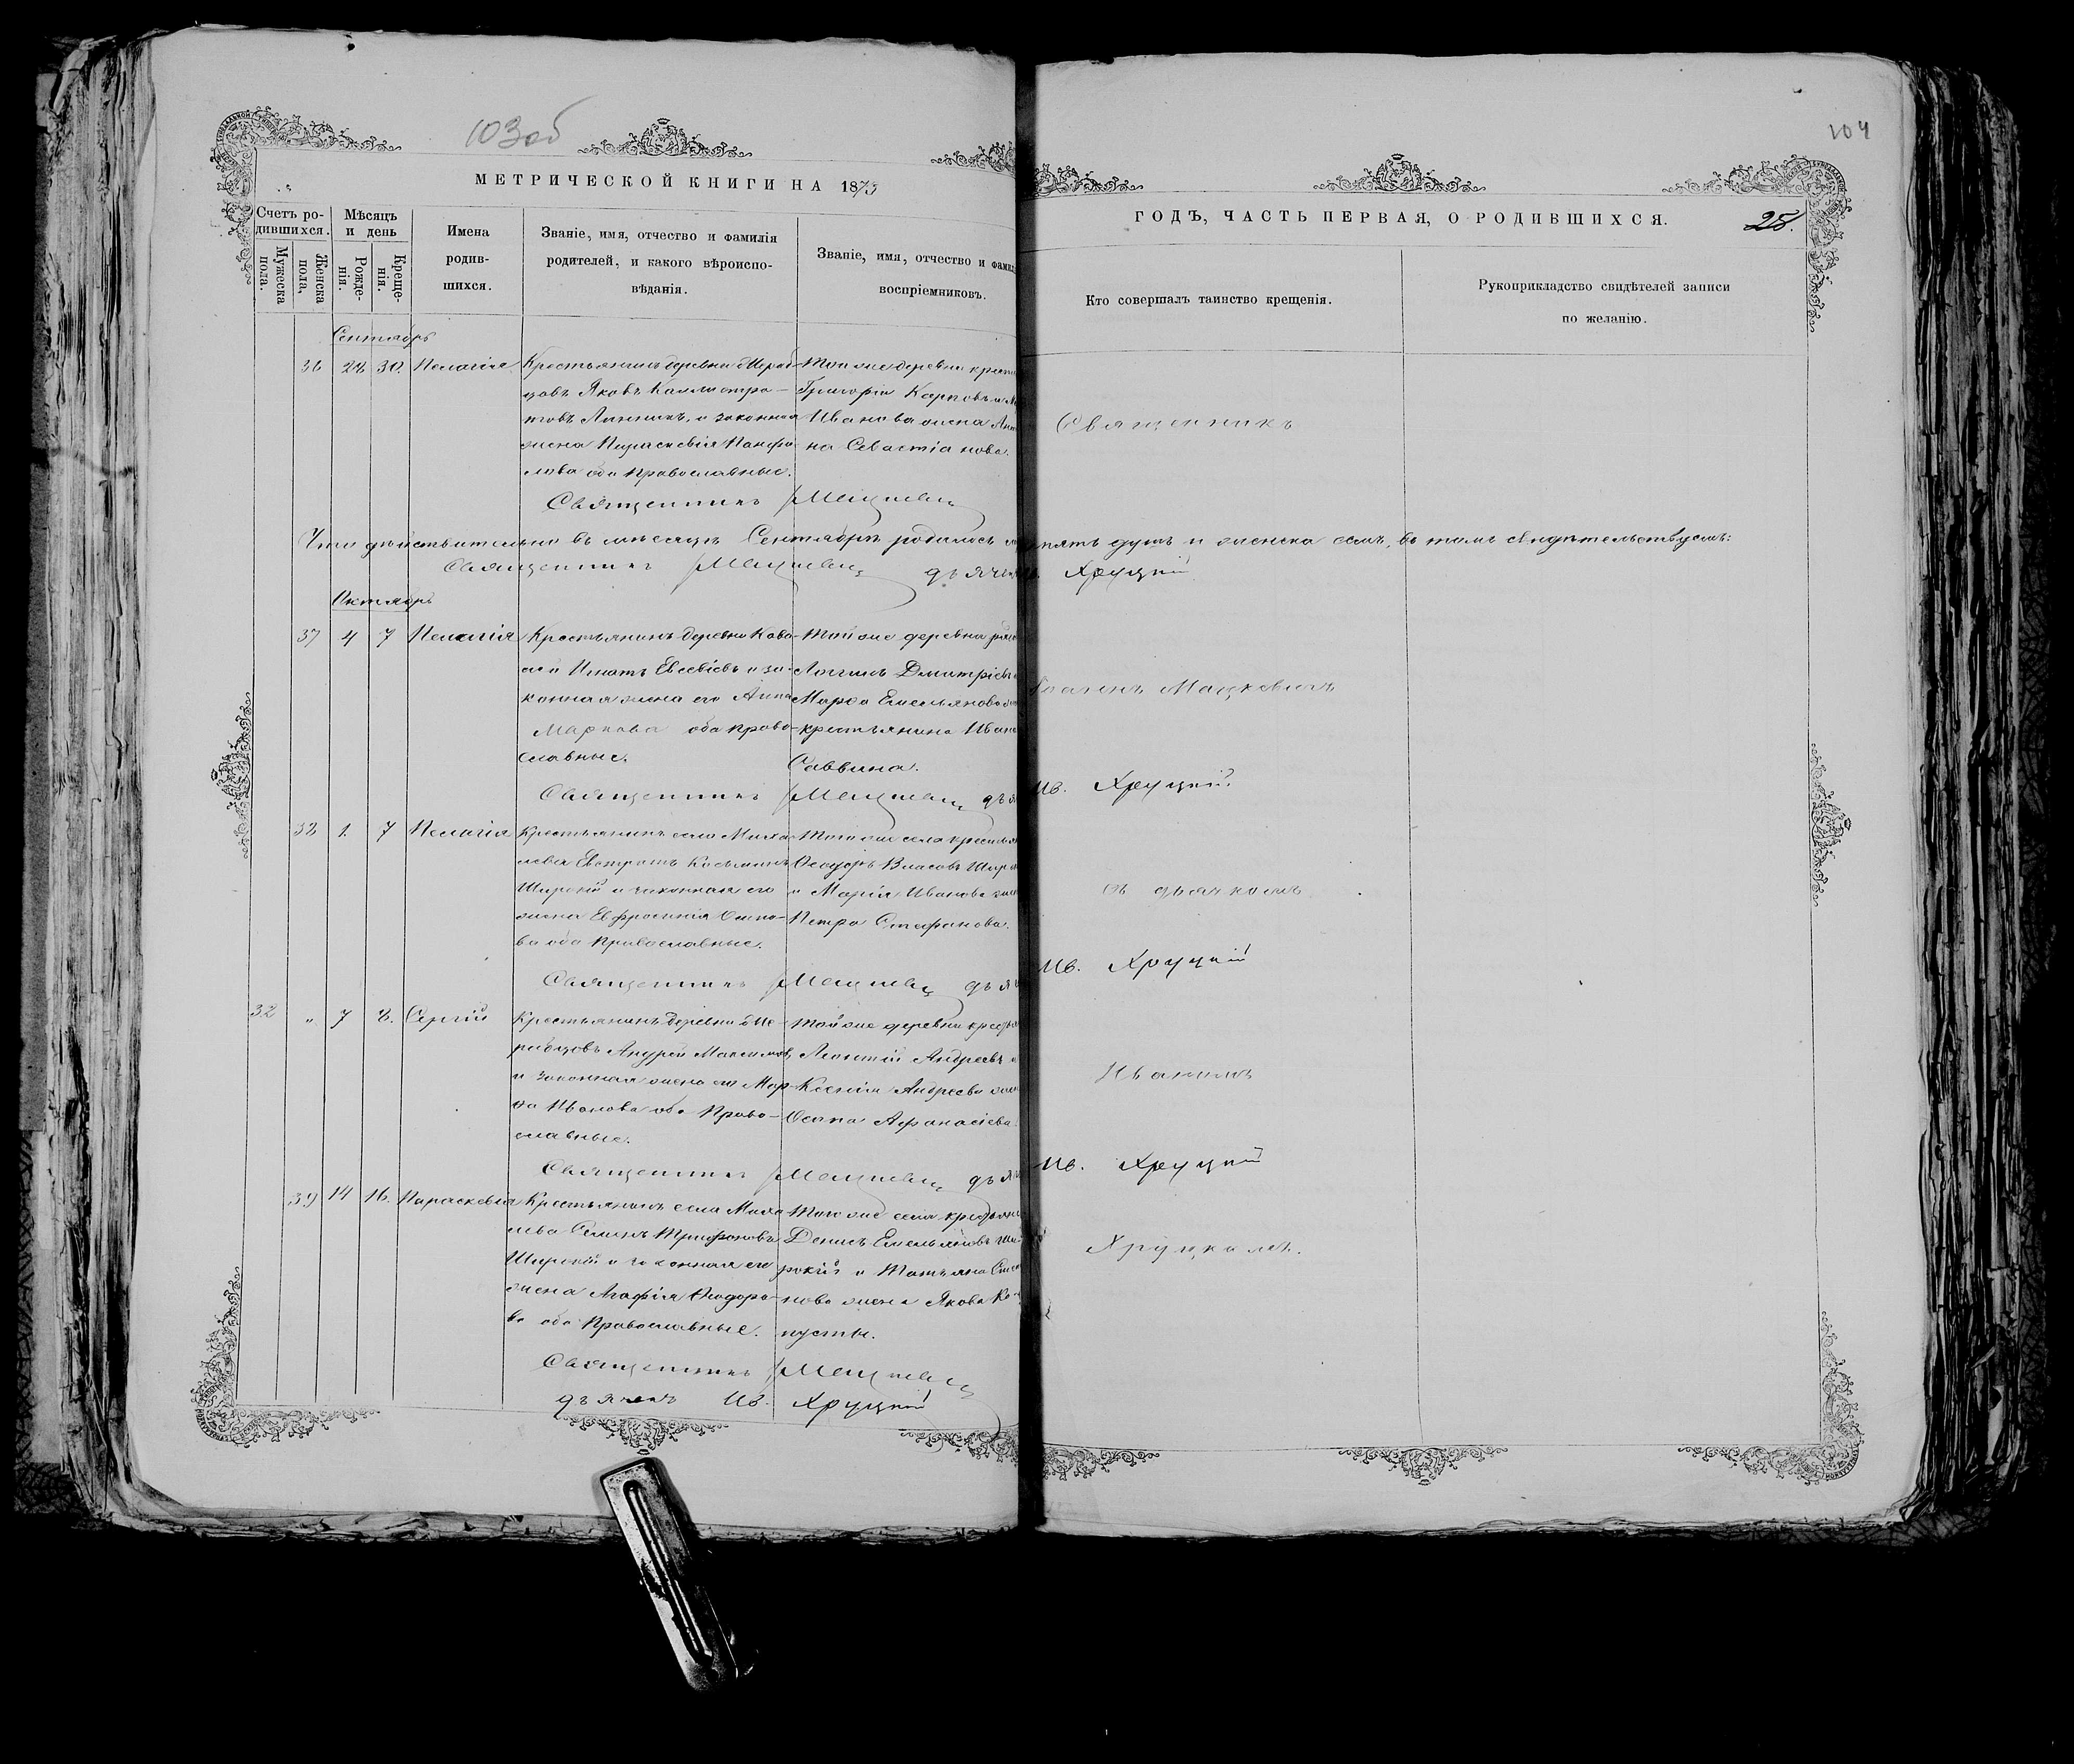 103об
104
МЕТРИЧЕСКОЙ КНИГИ НА 1873
ГОДЪ, ЧАСТЬ ПЕРВАЯ, О РОДИВШИХСЯ.
25.
Счетъ ро-
дившихся.
Мужеска
пола.
Женска
пола,
Мѣсяцъ
и день
Рожде-
нія.
Креще-
нія.
Имена
родив-
шихся.
Званіе, имя, отчество и фамилія
родителей, и какого вѣроиспо-
вѣданія.
Званіе, имя, отчество и фамил
воспріемниковъ.
Кто совершалъ таинство крещенія.
Рукоприкладство свидѣтелей записи
по желанію.
Сентябрь
36 28 30. Пелагія
Крестьянинъ деревни
цовъ Яковъ Каллистра-
товъ и законная
жена Параскевія Панфи-
лова оба православные.
Той же деревни крест
Григорій Карповъ и
Иванова жена Ант
на Севастіанова.
Священникъ
Священникъ Мацкевич
Что действительно въ мѣсяцѣ Сентябрѣ родилось
пять душъ и женска семь, въ томъ свидѣтельствуемъ:
Священникъ Мацкевич дьячекъ
Хруцкій
Октябрь
37 4 7 Пелагія
Крестьянинъ деревни Кова-
лей Игнатъ Евсевіевъ и за-
конная жена его Анна
Маркова оба право-
славные.
Той же деревни
Логинъ Дмитріевъ
Марѳа Емельянова
крестьянина Ивана
Саввина.
Іоаннъ Мацкевичъ
Священникъ Мацкевич
Ив. Хруцкій
38 1. 7 Пелагія
Крестьянинъ села Миха-
лева Евстратъ Косьминъ
Широкій и законная его
жена Евфросинія Осипо-
ва оба Православные.
Того же села крестья
Ѳеодоръ Власовъ Широ
и Марія Иванова жена
Петра Стефанова.
съ дьячкомъ
Священникъ Мацкевич
Ив. Хруцкій
32 " 7 8. Сергій
Крестьянинъ деревни
Андрей Максимовъ
и законная жена его Мар-
ѳа Иванова оба Право-
славные.
Той же деревни крестья
Леонтій Андреевъ и
Ксенія Андреева жена
Осипа Афанасіева
Иваномъ
Священникъ Мацкевич
Ив. Хруцкій
39 14 16. Параскевія
Крестьянинъ села Миха
лева Трифонова
Широкій и законная его
жена Агафія Ѳеодоро-
ва оба Православные.
Того же села крестьян
Денисъ Емельяновъ Ши-
рокій и Татьяна
нова жена Якова Ка-
пусты.
Хруцкимъ.
Священникъ Мацкевич
дьячекъ Ив. Хруцкій